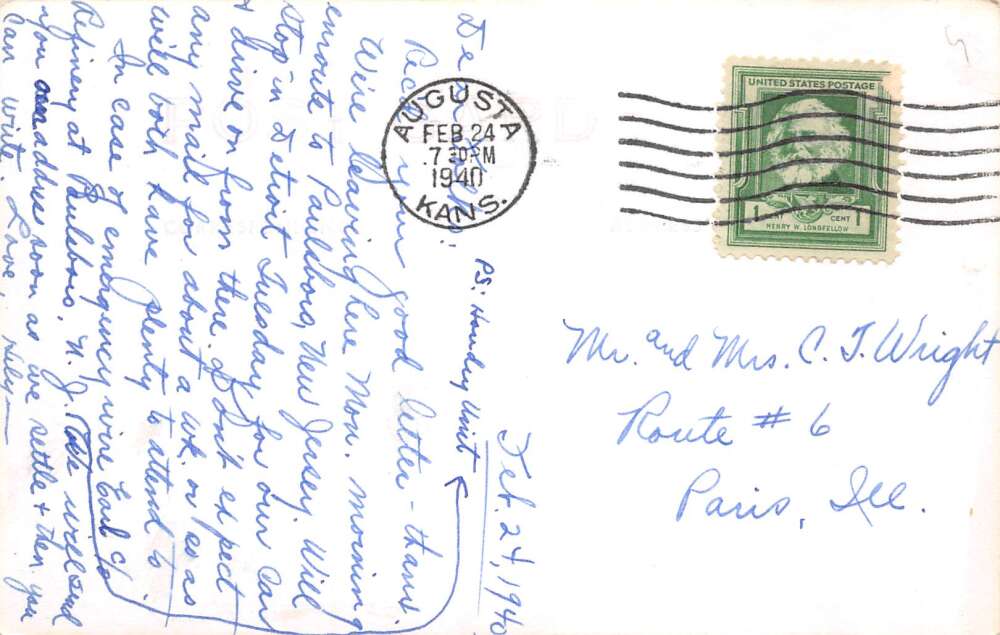 Feb. 24, 1940
De
Recd your good letter - thanx.
We're leaving here Mon. morning
enroute to Paulsboro, New Jersey. Will
stop in Detroit Tuesday for our car
& drive on from there. Don't expect
any mail for about a wk. or so as
will both have plenty to attend to.
In case of emergency wire Earl c/o
Refinery at Paulsboro, N. J. We will send
you address soon as we settle & then you
can write. Love,
PS: Houdry Unit
AUGUSTA
FEB 24
7 30 PM
1940
KANS.
UNITED STATES POSTAGE
1 CENT CENT 1
HENRY W. LONGFELLOW
Mr. and Mrs. C. T. Wright
Route # 6
Paris, Ill.